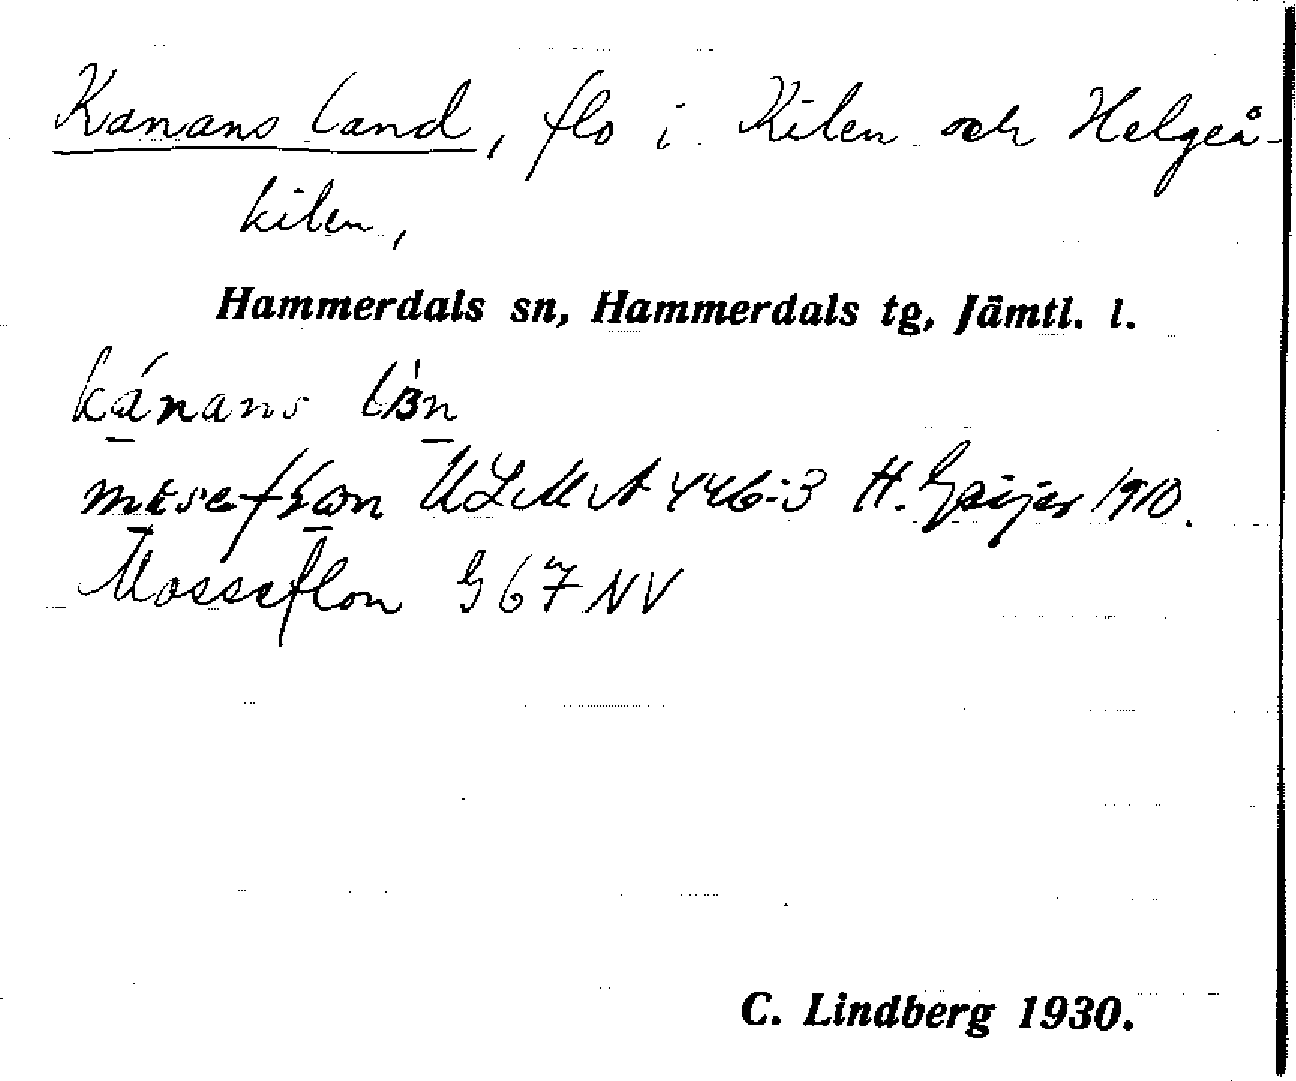 Kanans land, flo i Kilen och Helgeå-
kilen,
Hammerdals sn, Hammerdals tg, Jämtl. l.
kánans
ULMA 446:3 H. Geijer 1910.
Mosseflon G 67 NV
C. Lindberg 1930.